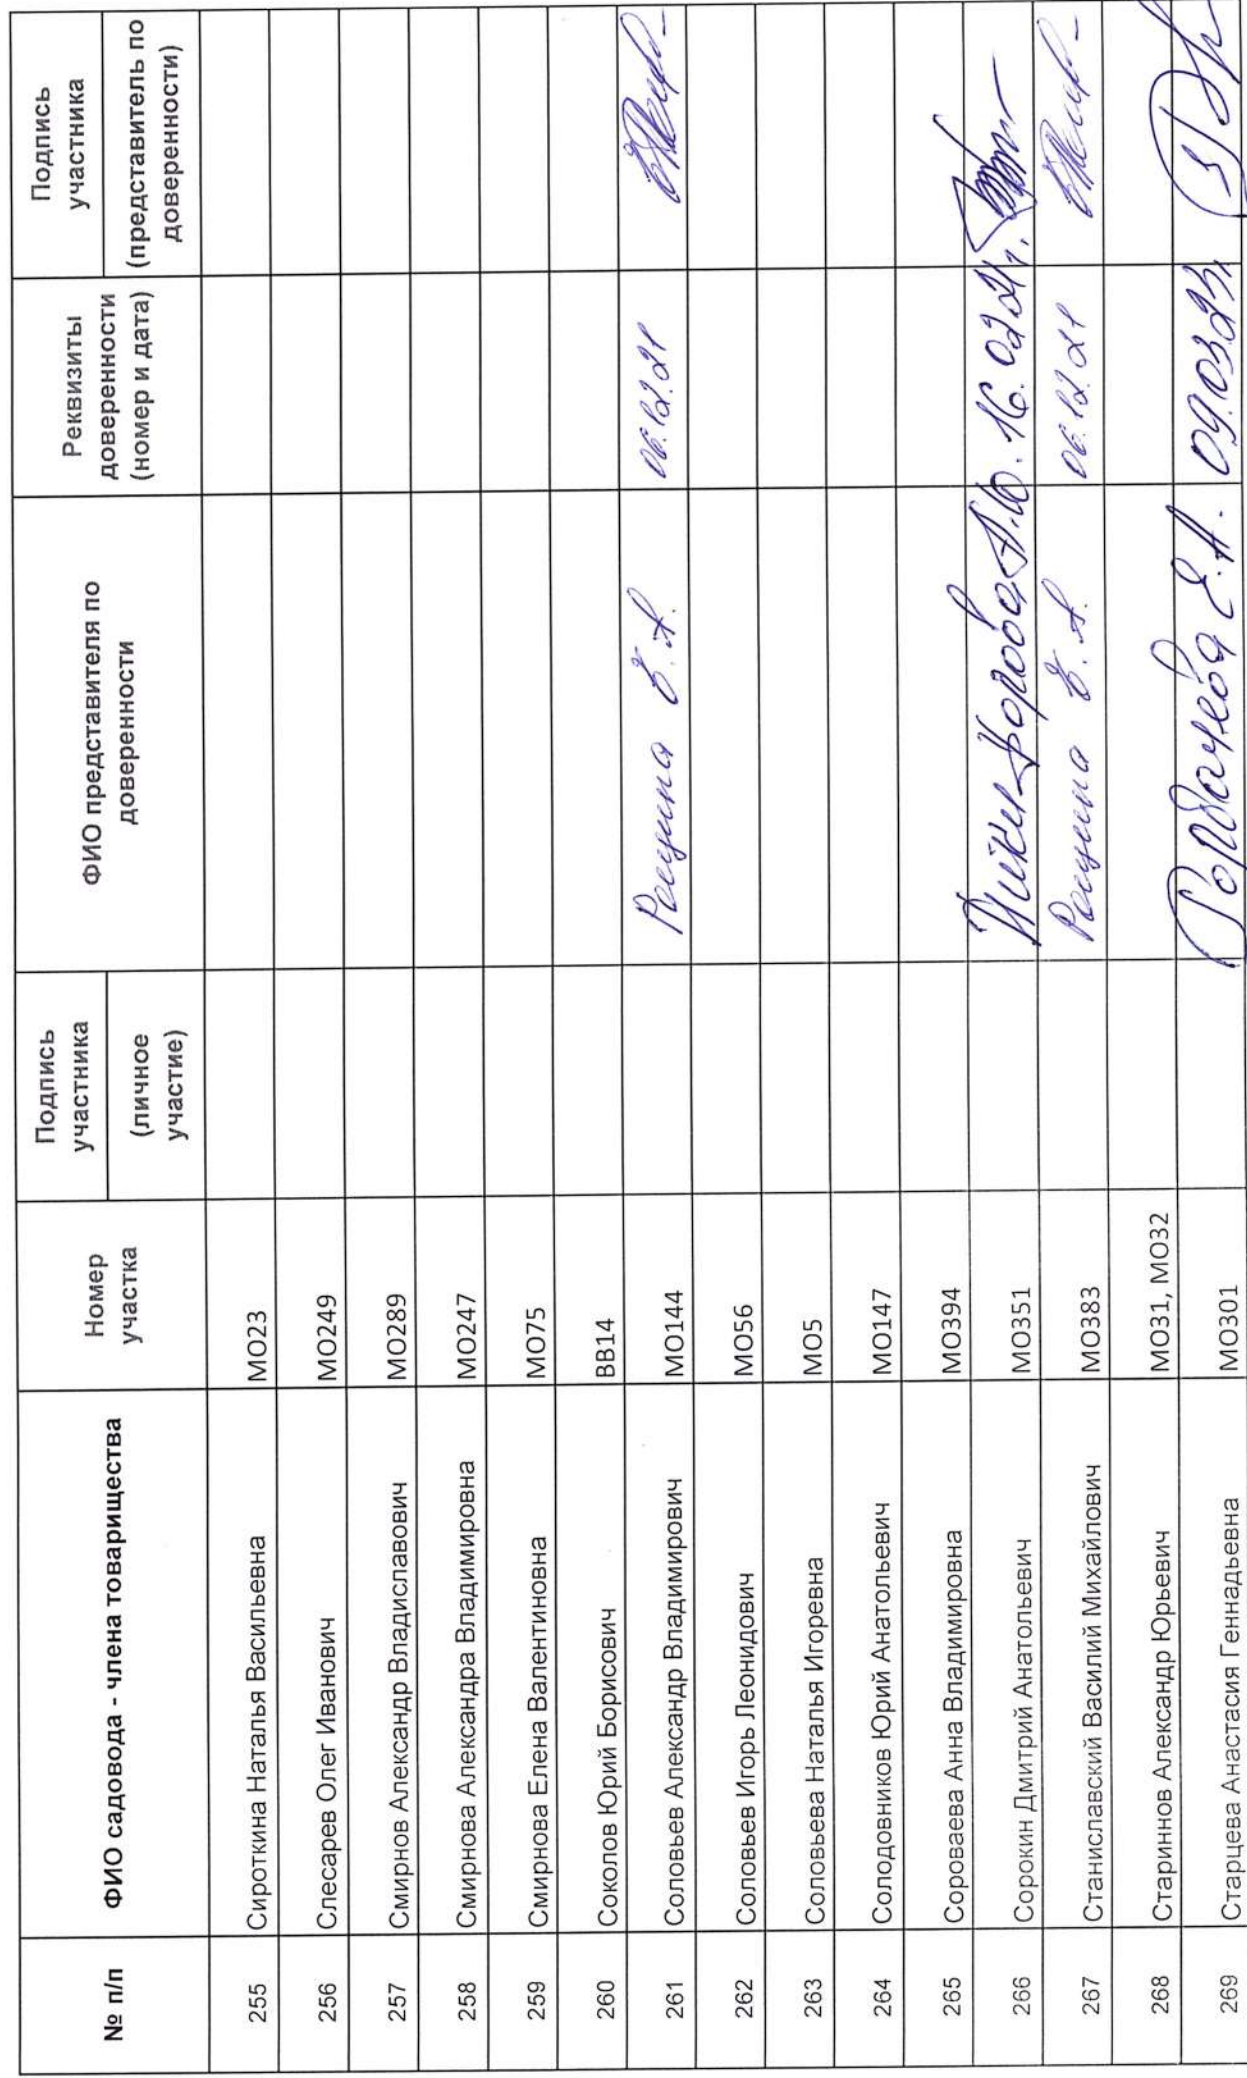 № п/п ФИО садовода - члена товарищества Номер участка Подпись участника (личное участие) ФИО представителя по доверенности Реквизиты доверенности (номер и дата) Подпись участника (представитель по доверенности)
255 Сироткина Наталья Васильевна МО23
256 Слесарев Олег Иванович МО249
257 Смирнов Александр Владиславович МО289
258 Смирнова Александра Владимировна МО247
259 Смирнова Елена Валентиновна МО75
260 Соколов Юрий Борисович ВВ14
261 Соловьев Александр Владимирович МО144 Рощина Е.А. 06.12.21
262 Соловьев Игорь Леонидович МО56
263 Соловьева Наталья Игоревна МО5
264 Солодовников Юрий Анатольевич МО147
265 Сороваева Анна Владимировна МО394
266 Сорокин Дмитрий Анатольевич МО351 16.02.21г.
267 Станиславский Василий Михайлович МО383 Рощина Е.А. 06.12.21
268 Стариннов Александр Юрьевич МО31, МО32
269 Старцева Анастасия Геннадьевна МО301 Горбачева Е.А.